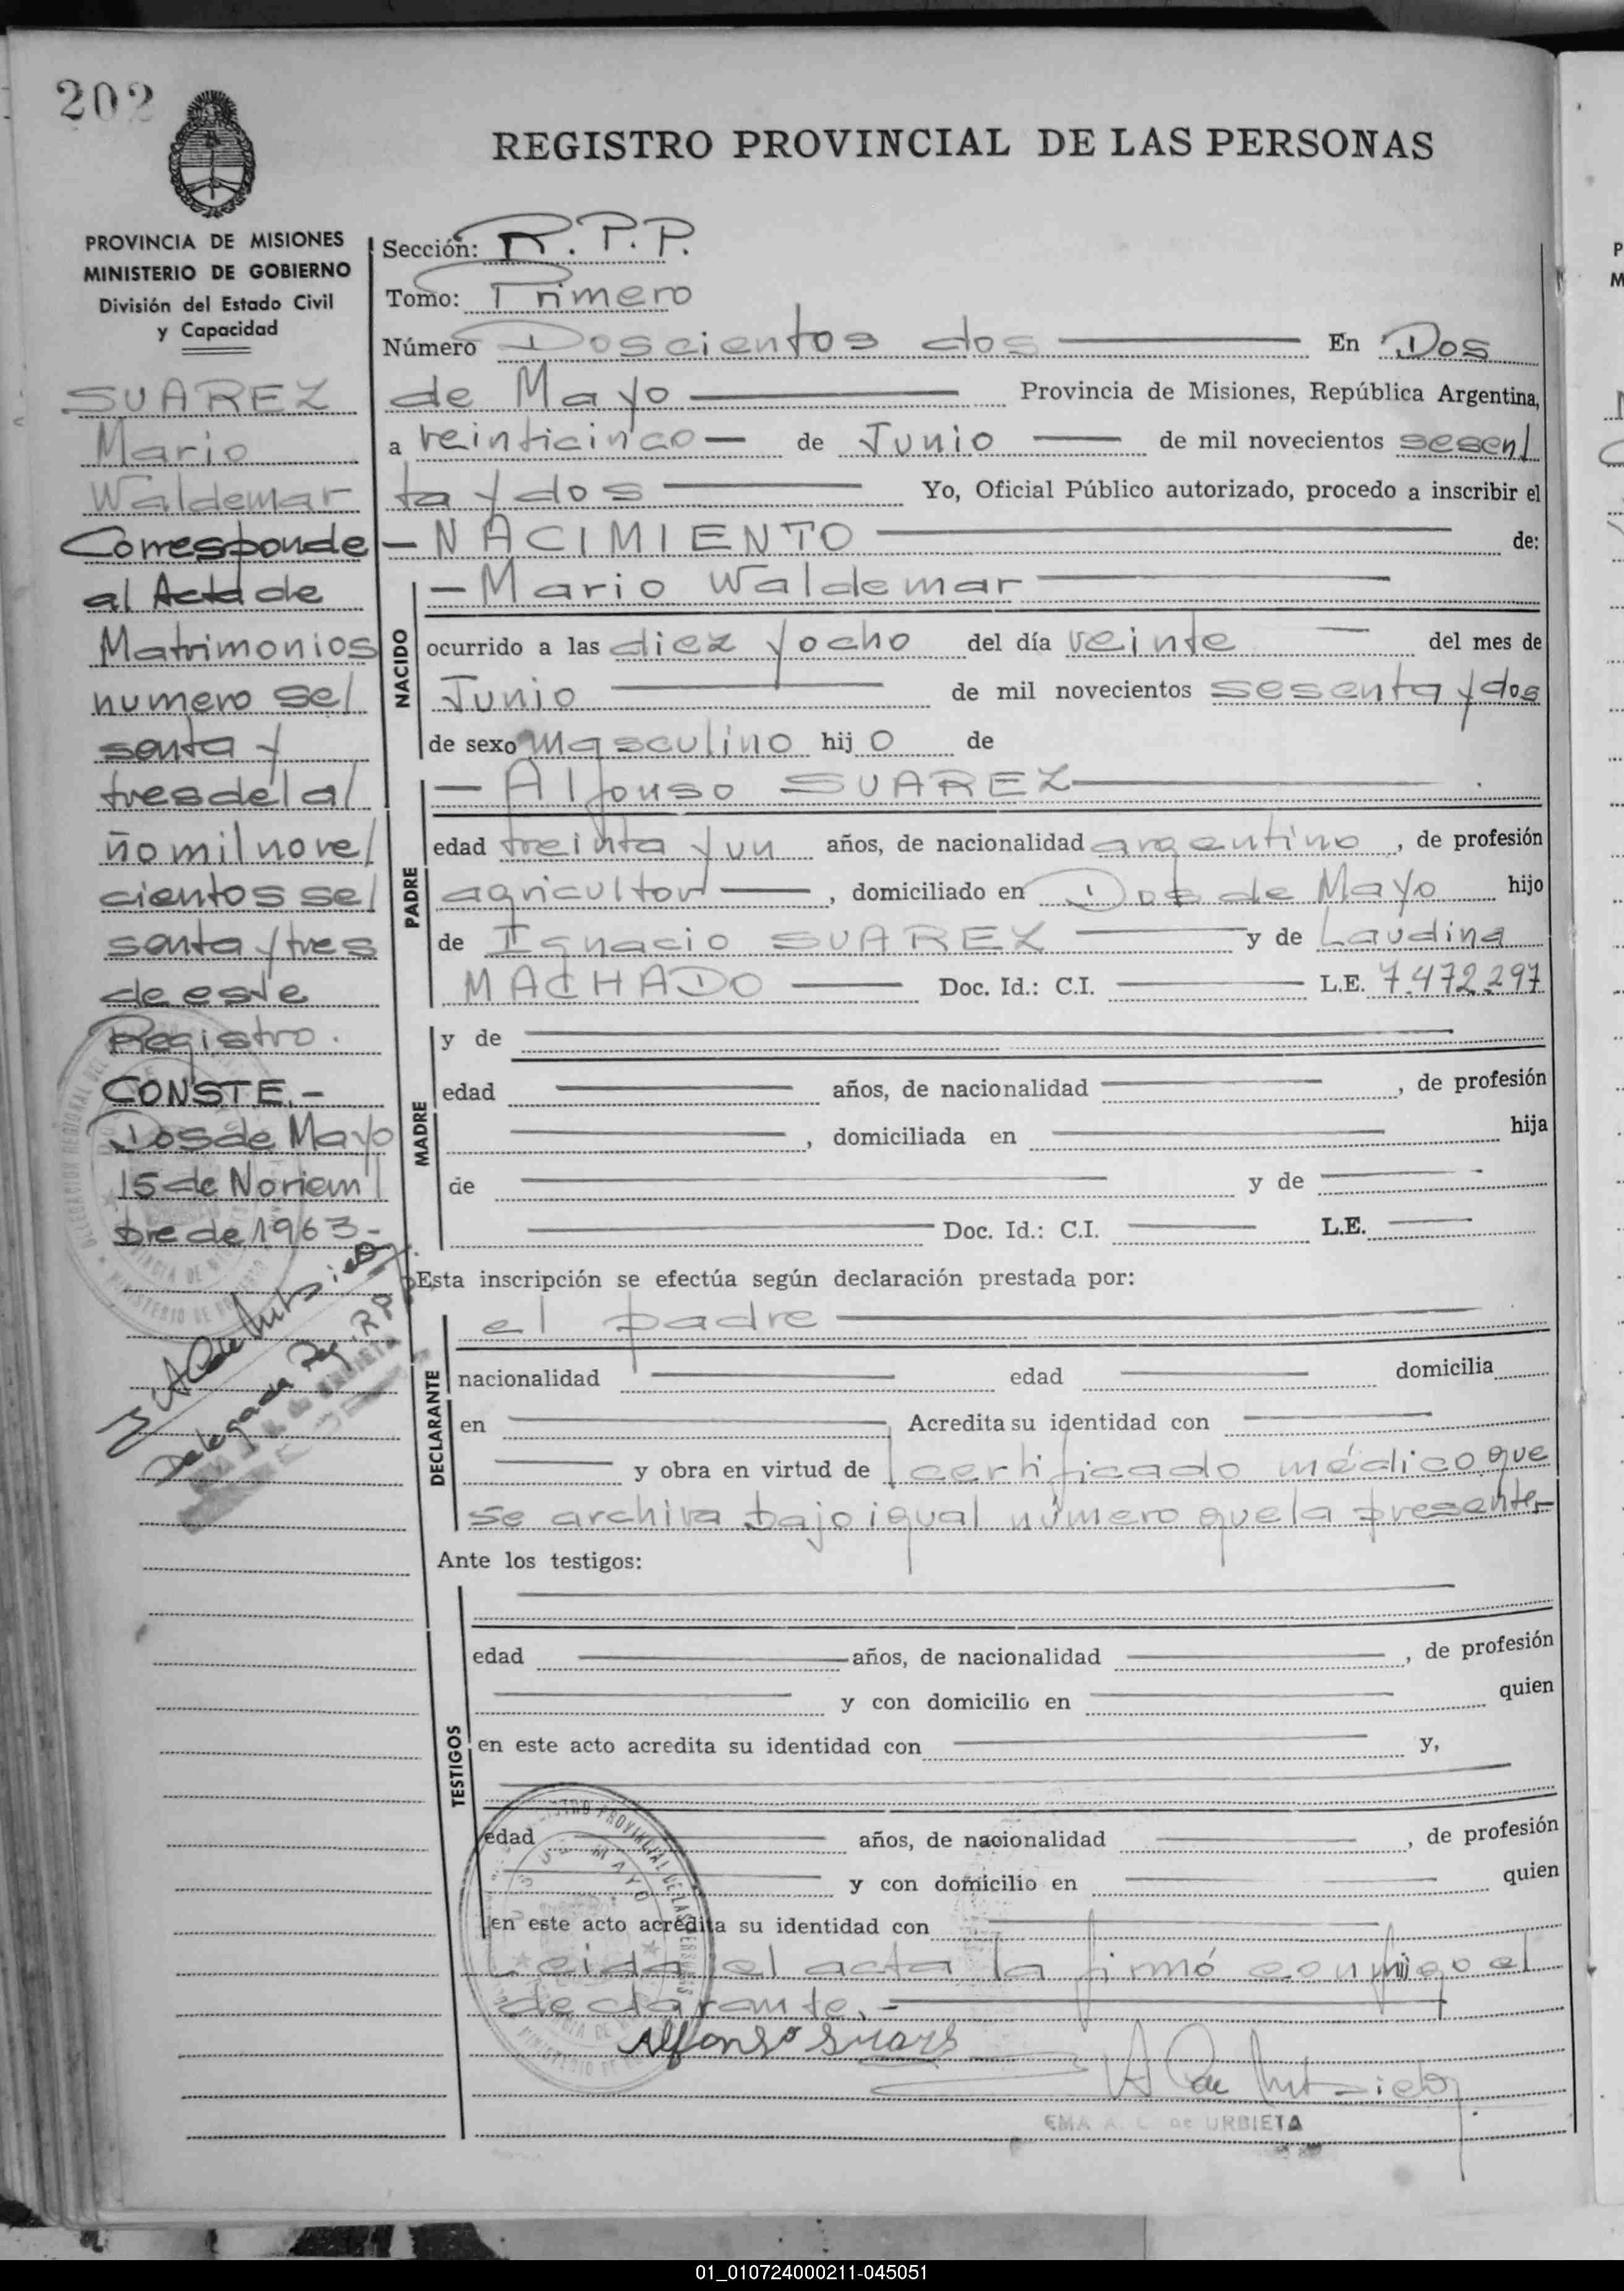 202
REGISTRO PROVINCIAL DE LAS PERSONAS
PROVINCIA DE MISIONES
MINISTERIO DE GOBIERNO
División del Estado Civil
y Capacidad
SUAREZ
Mario
Waldemar
Corresponde
al Acta de
Matrimonios
numero se/
senta y
tres del a/
ño mil nove/
cientos se/
senta y tres
de este
Registro.
CONSTE.-
Dos de Mayo
15 de Noviem/
bre de 1963-
Delegada Reg. R P P
Sección: R. P. P.
Tomo: Primero
Número Doscientos dos En Dos
de Mayo Provincia de Misiones, República Argentina,
a veinticinco de Junio de mil novecientos sesen/
ta y dos Yo, Oficial Público autorizado, procedo a inscribir el
- NACIMIENTO de:
NACIDO
- Mario Waldemar
ocurrido a las diez y ocho del día veinte del mes de
Junio de mil novecientos sesenta y dos
de sexo masculino hij o de
PADRE
- Alfonso SUAREZ
edad treinta y un años, de nacionalidad argentino, de profesión
agricultor, domiciliado en Dos de Mayo hijo
de Ignacio SUAREZ y de Laudina
MACHADO Doc. Id.: C.I. L.E. 7.472.297
MADRE
y de
edad años, de nacionalidad , de profesión
, domiciliada en hija
de y de
Doc. Id.: C.I. L.E.
Esta inscripción se efectúa según declaración prestada por:
DECLARANTE
el padre
nacionalidad edad domicilia
en Acredita su identidad con
y obra en virtud de certificado médico que
se archiva bajo igual número que la presente-
Ante los testigos:
TESTIGOS
edad años, de nacionalidad , de profesión
y con domicilio en quien
en este acto acredita su identidad con y,
edad años, de nacionalidad , de profesión
y con domicilio en quien
en este acto acredita su identidad con
Leida el acta la firmó conmigo el
declarante.-
Alfonso Suares
EMA A. C. de URBIETA
01_010724000211-045051